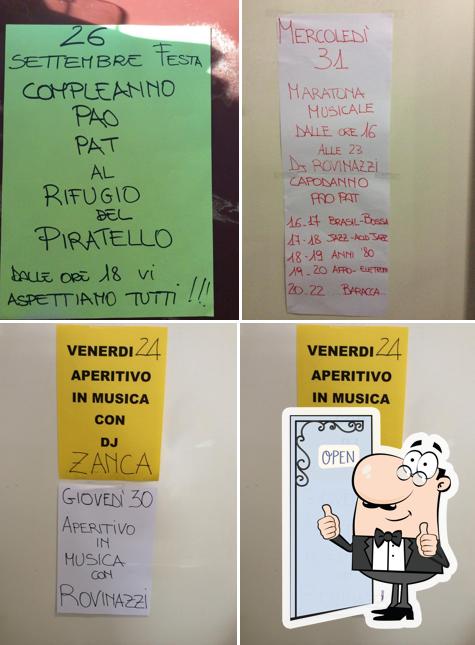 26
SETTEMBRE FESTA
COMPLEANNO
PAO
PAT
AL
RIFUGIO
DEL
PIRATELLO
DALLE ORE 18 VI
ASPETTIAMO TUTTI !!!
MERCOLEDÌ
31
MARATONA
MUSICALE
DALLE ORE 16
ALLE 23
DJ ROVINAZZI
CAPODANNO
PAO PAT
16-17 BRASIL-BOSSA
17-18 JAZZ-ACID JAZZ
18-19 ANNI '80
19-20 AFRO-ELETTRO
20-22 BARACCA...
VENERDI 24
APERITIVO
IN MUSICA
CON
DJ
ZANCA
GIOVEDÌ 30
APERITIVO
IN
MUSICA
CON
ROVINAZZI
VENERDI 24
APERITIVO
IN MUSICA
OPEN